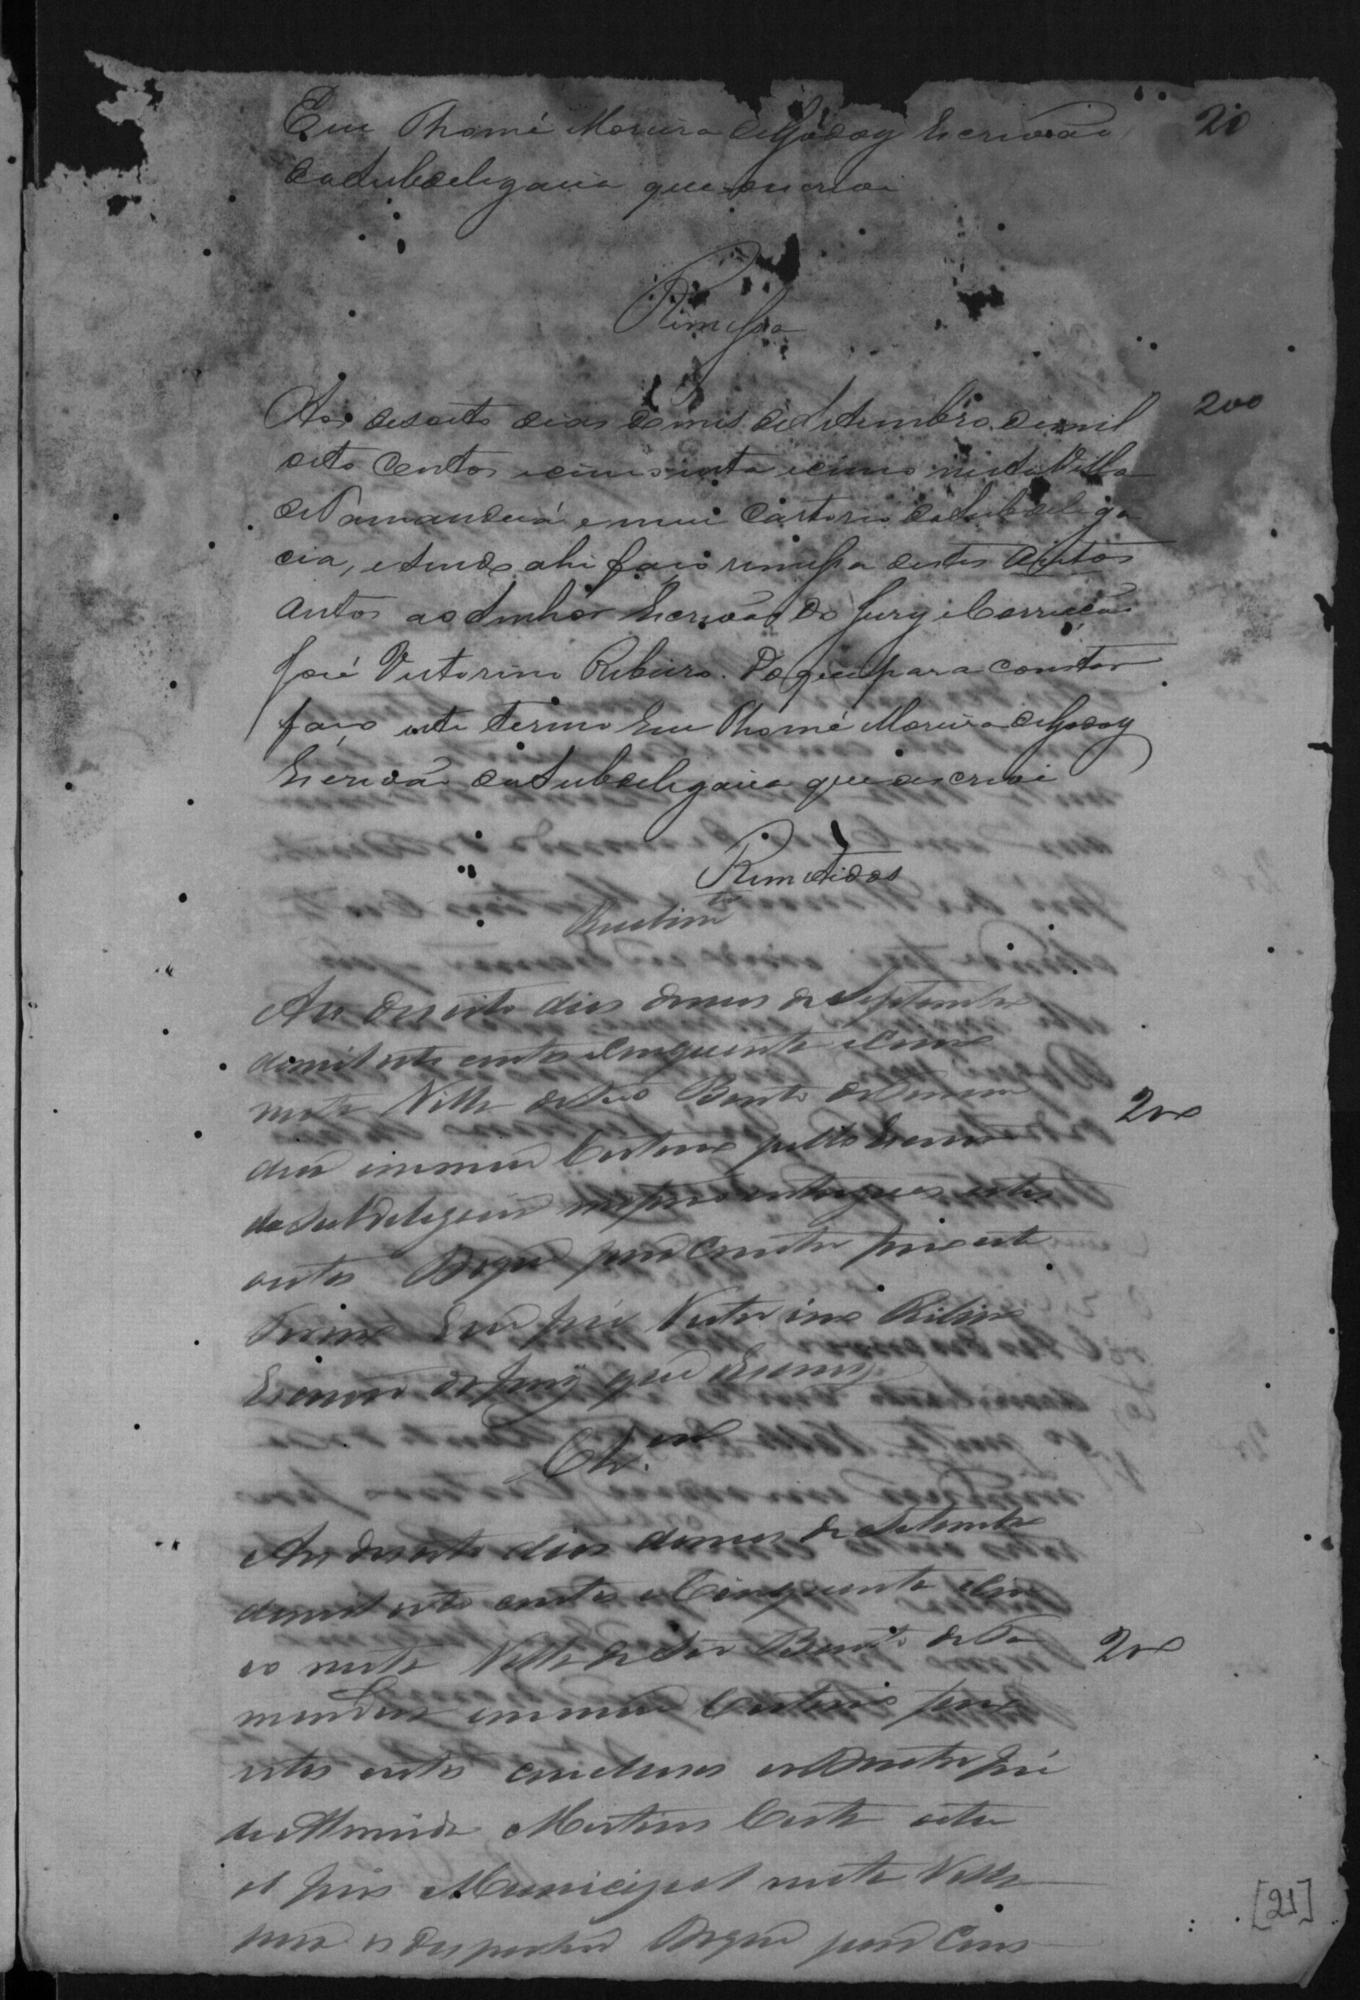 Eu Thomé Moreira de Godoy Escrivão
20
da Subdelegacia que o escrevi
Remessa
Aos desoito dias do mes de Setembro de mil
200
oito centos e cincoenta e cinco nesta Villa
de Tamanduá em meu Cartorio da Subdelega
cia, e sendo ahi faço remessa destes autos
autos ao Senhor Escrivão do Jury e Correição
José Victorino Ribeiro. Do que para constar
faço este termo Eu Thomé Moreira de Godoy
Escrivão da Subdelegacia que o escrevi
Remetidos
Recebim.to
Aos desoito dias do mes de Septembro
de mil oito centos e cincoenta e cinco
nesta Villa de São Bento de Taman
200
dua em meu Cartorio pello Escrivão
da Subdelegacia me forão entregues estes
autos Do que para constar fiz este
termo Eu José Victorino Ribeiro
Escrivão do Jury que o escrevi
Cl.am
Aos desoito dias do mes de Setembro
de mil oito centos e Cincoenta e Cin
co nesta Villa de São Bento de Ta
200
mandua em meu Cartorio faço
estes autos conclusos ao Doutor José
de Almeida Martins Costa
Juis Municipal nesta Villa
para os despachar Do que para Cons
[21]